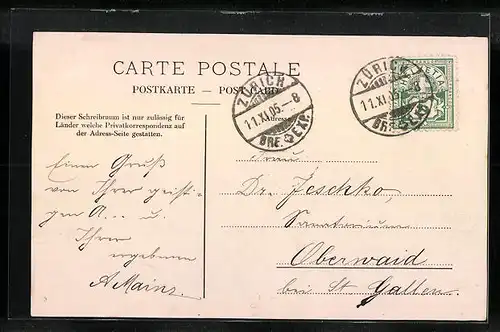 CARTE POSTALE
POSTKARTE — POST CARD
Dieser Schreibraum ist nur zulässig für
Länder welche Privatkorrespondenz auf
der Adress-Seite gestatten.
Adresse
ZÜRICH
11.XI.05.–8
BRF. EXP.
ZÜRICH
11.XI.05.–8
BRF. EXP.
Einen Gruß
von Ihrer geisti-
gen A... u.
Ihrem
ergebenen
A Mainz.
Dr. Jeschko,
Sanatorium
Oberwaid
bei St Gallen.